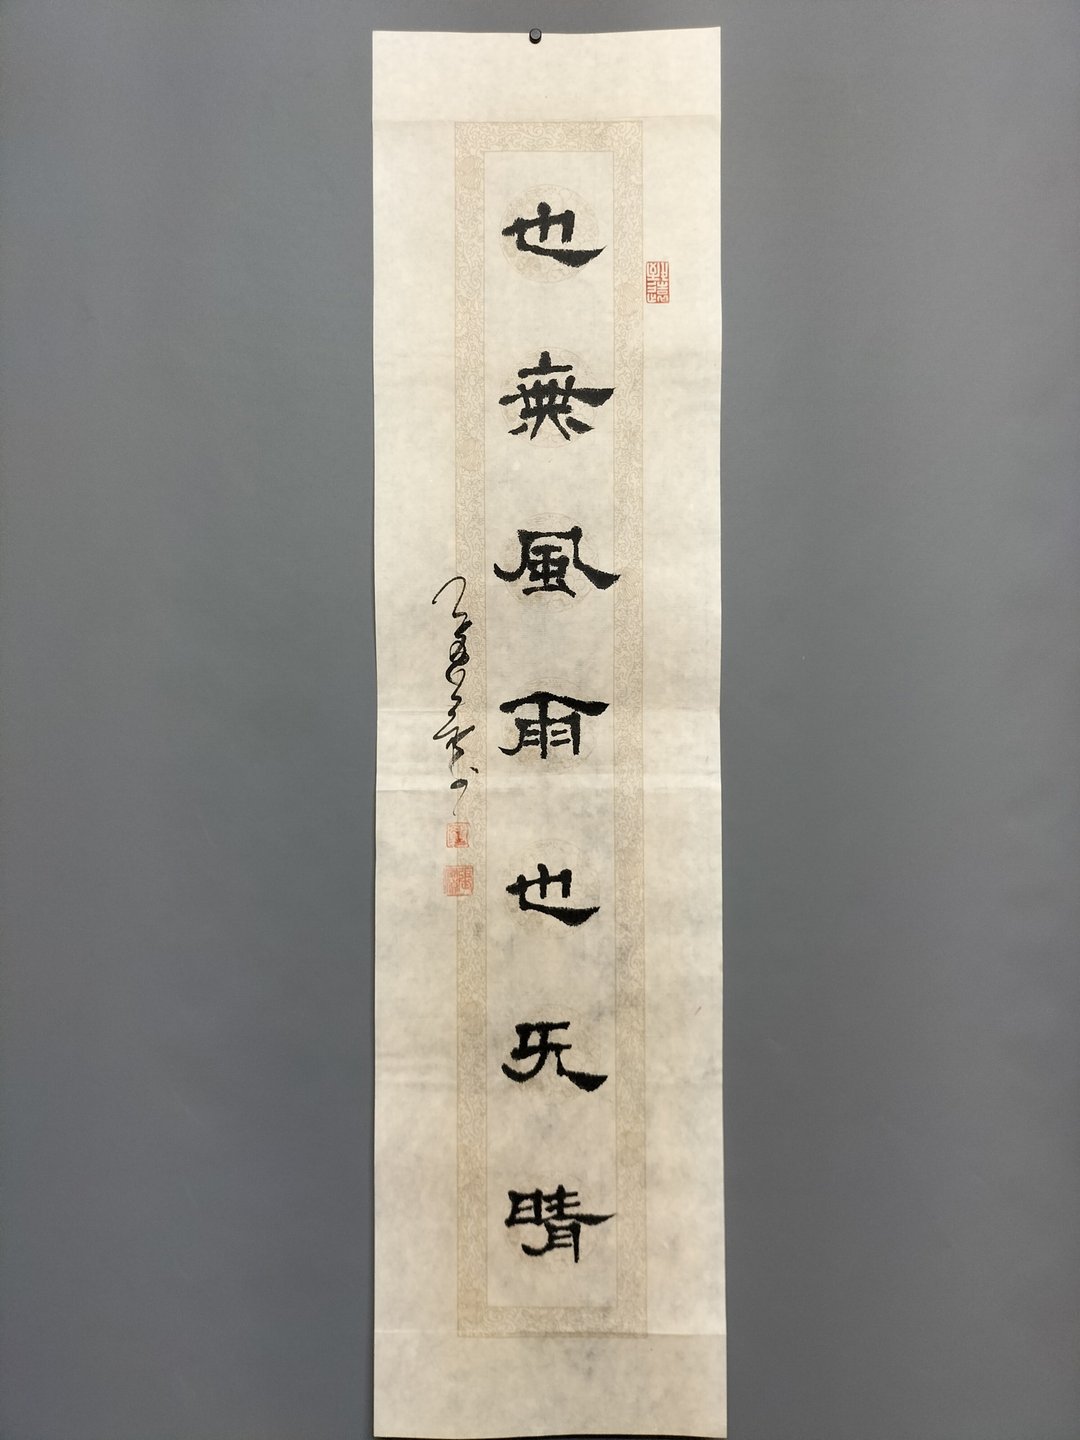 也無風雨也无晴